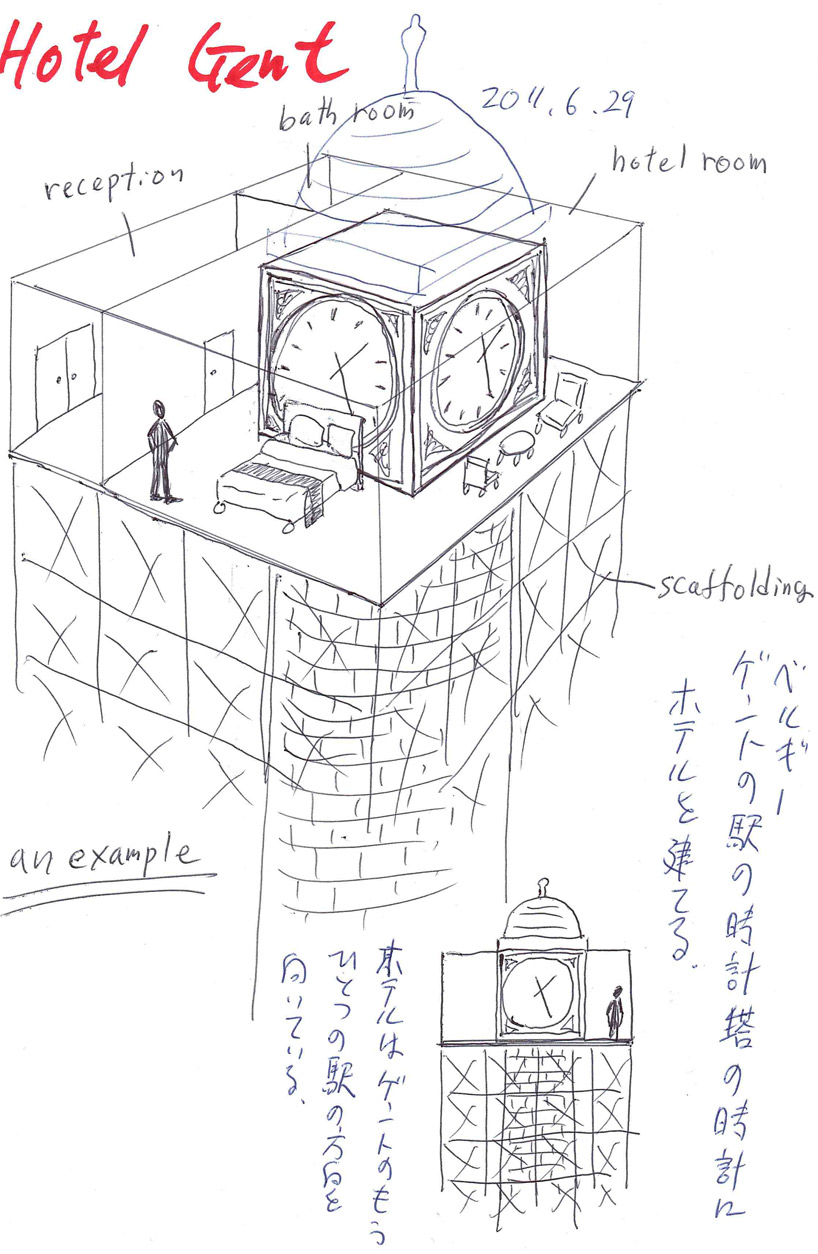 Hotel Gent
2011.6.29
bath room
hotel room
reception
scaffolding
ベルギー
ゲントの駅の時計塔の時計に
ホテルを建てる。
an example
ホテルはゲントのもう
ひとつの駅の方向を
向いている。